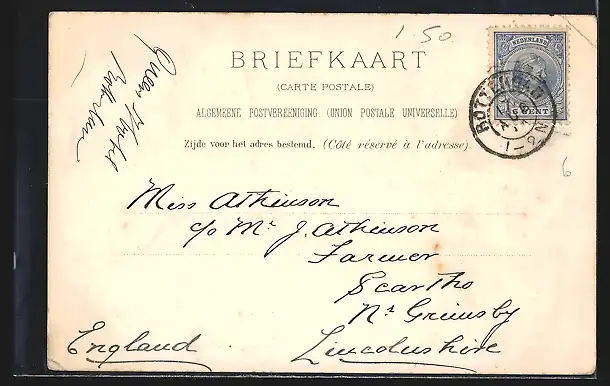 1.50
BRIEFKAART
(CARTE POSTALE)
ALGEMEENE POSTVEREENIGING (UNION POSTALE UNIVERSELLE)
Zijde voor het adres bestemd. (Côté réservé à l'adresse).
NEDERLAND
CENT
ROTTERDAM
1-2N
Miss Atkinson
c/o Mr J. Atkinson
Farmer
Scartho
Nr Grimsby
Lincolnshire
England
6